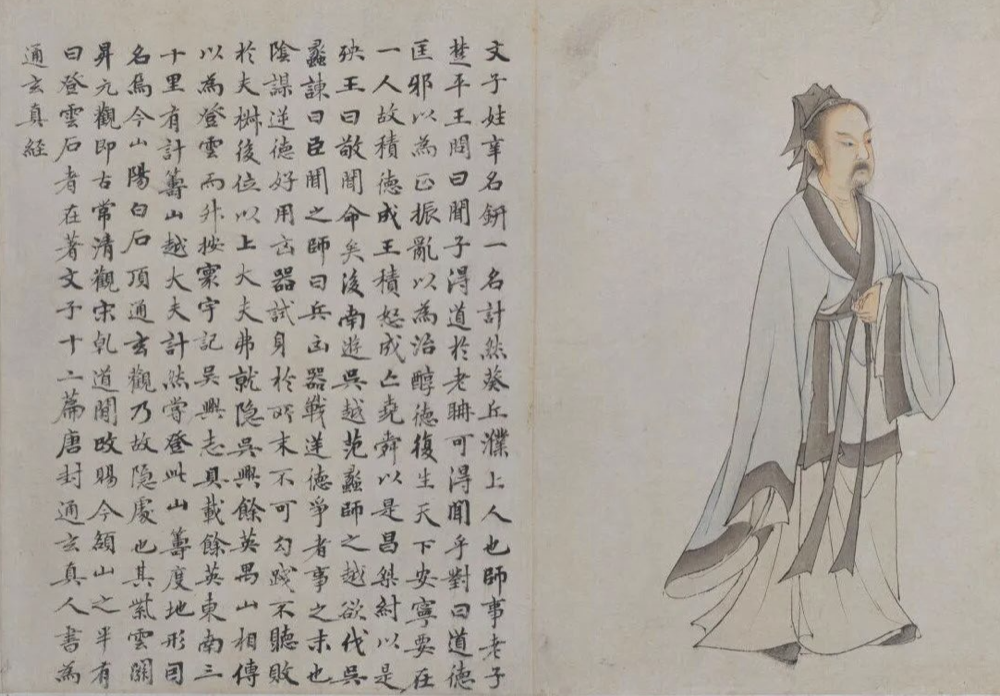 文子姓辛名鈃一名計然葵丘濮上人也師事老子
楚平王問曰聞子得道於老聃可得聞乎對曰道德
匡邪以為正振亂以為治醇德復生天下安寧要在
一人故積德成王積怒成亡堯舜以是昌桀紂以是
殃王曰敬聞命矣後南遊吳越范蠡師之越欲伐吳
蠡諫曰臣聞之師曰兵凶器戰逆德爭者事之末也
陰謀逆德好用凶器試身於所末不可勾踐不聽敗
於夫椒後位以上大夫弗就隱吳興餘英禺山相傳
以為登雲而升按寰宇記吳興志具載餘英東南三
十里有計籌山越大夫計然嘗登此山籌度地形因
名焉今山陽白石頂通玄觀乃故隱處也其紫雲關
昇元觀即古常清觀宋乾道間改賜今額山之半有
曰登雲石者在著文子十二篇唐封通玄真人書為
通玄真經